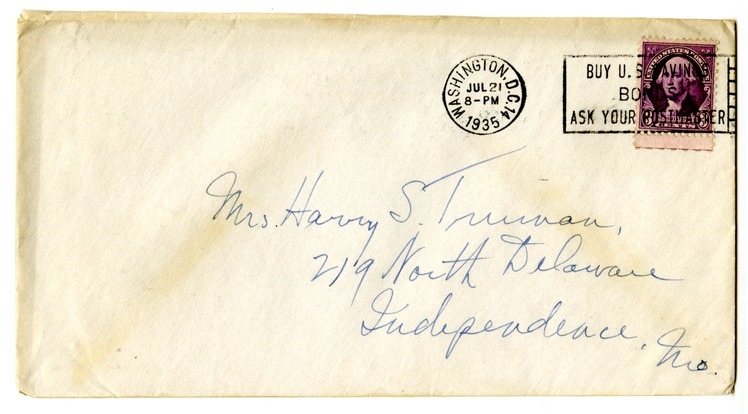 WASHINGTON, D.C. 14
JUL 21
8-PM
1935
BUY U.S. SAVINGS
BONDS
ASK YOUR POSTMASTER
Mrs. Harry S. Truman,
219 North Delaware
Independence,
Mo.